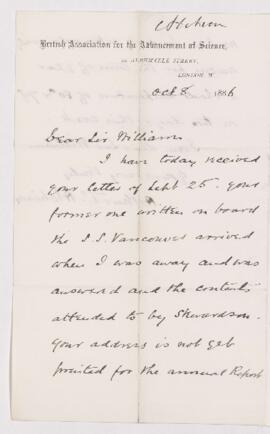 British Association for the Advancement of Science,
22 ALBEMARLE STREET,
LONDON W
Oct 8 1886
Dear Sir William
I have today received
your letter of Sept 25. your
former one written on board
the S.S. Vancouver arrived
when I was away and was
answered and the contents
attended to by Stewardson.
your address is not yet
printed for the annual Report